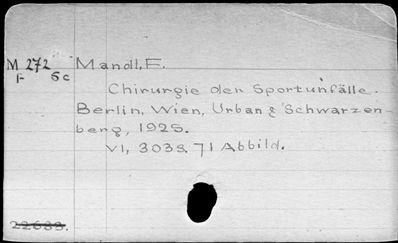 M 272 Mandl, F.
F Sc
Chirurgie der Sportunfälle.
Berlin, Wien, Urban & Schwarzen-
berg, 1925.
VI, 303 S. 71 Abbild.
22633.